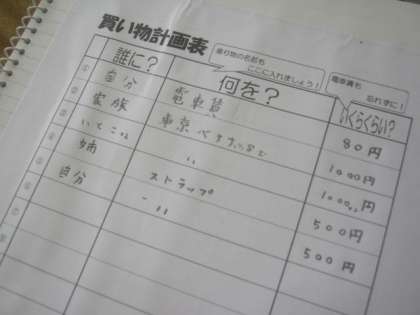 買い物計画表
乗り物の名前も
ここに入れましょう!
電車賃も
忘れずに!
誰に? 何を? いくらくらい?
① 自分 電車賃 80円
② 家族 東京 1000円
③ いとこ 〃 1000円
④ 姉 ストラップ 500円
⑤ 自分 〃 500円
⑥
⑦
⑧